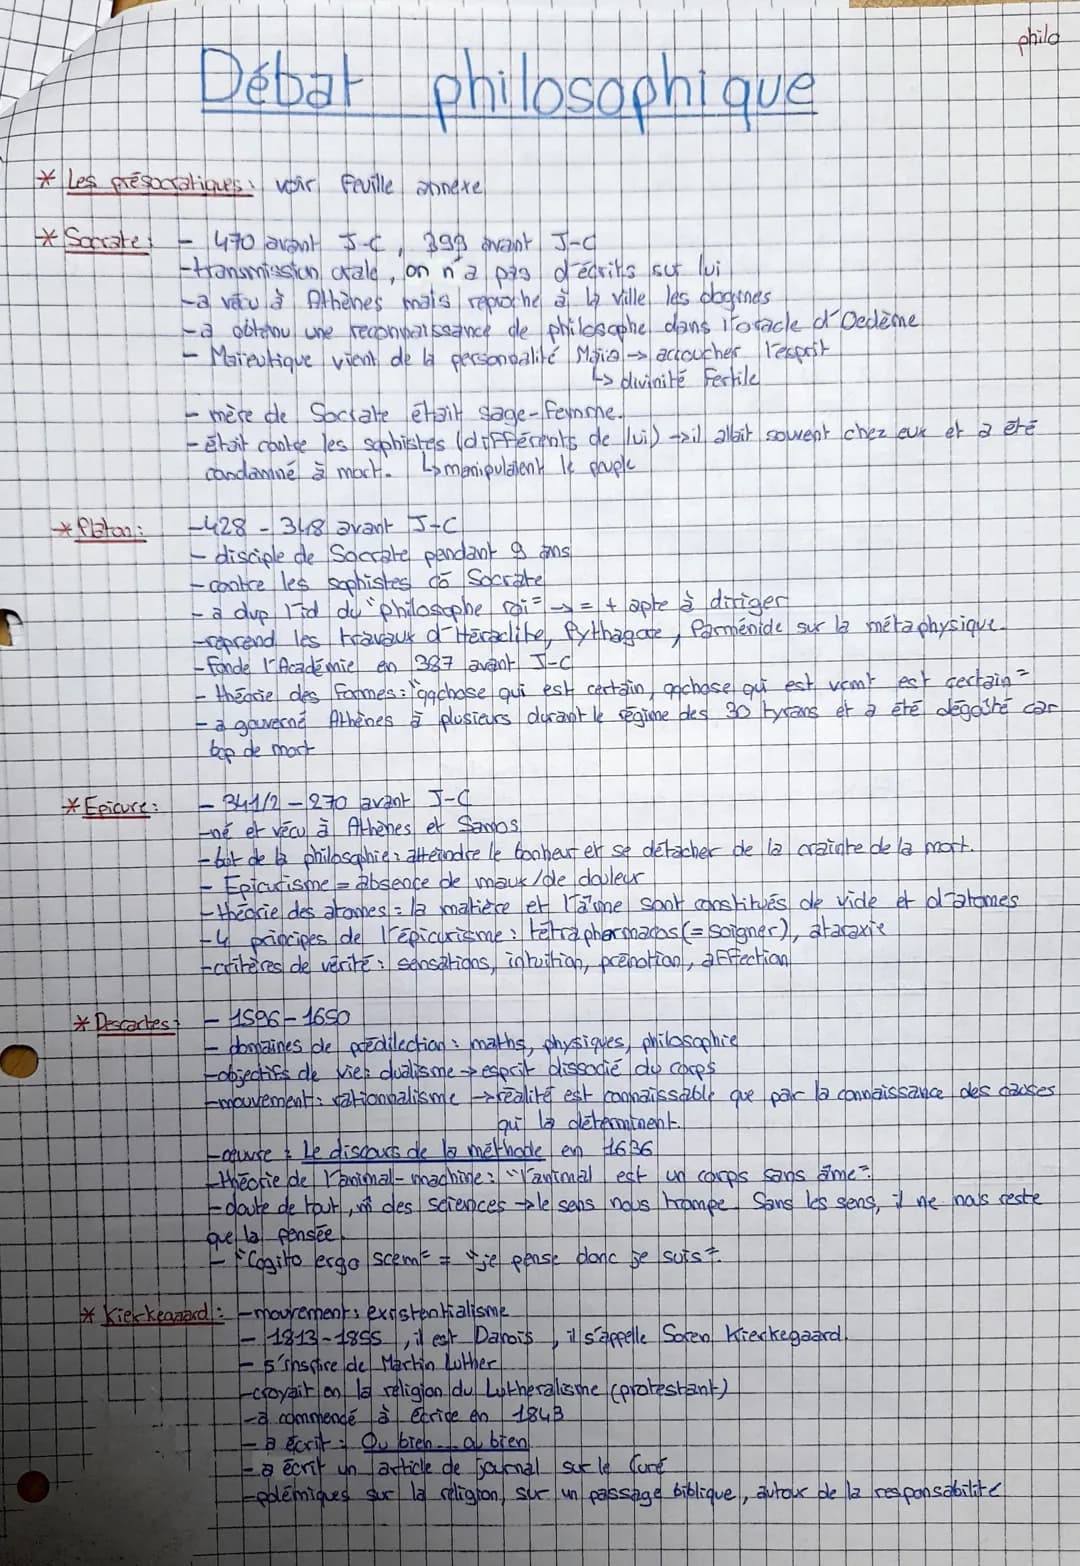 philo
Débat philosophique
* Les présocratiques : voir feuille annexe
* Socrate : - 470 avant J-C, 399 avant J-C
- transmission orale, on n'a pas d'écrits sur lui
- a vécu à Athènes mais reproche à la ville les dogmes
- a obtenu une reconnaissance de philosophe dans l'oracle d'Oedème
- Maïeutique vient de la personnalité Maïa → accoucher l'esprit
↳ divinité fertile
- mère de Socrate était sage-femme.
- était contre les sophistes (différents de lui) → il allait souvent chez eux et a été
condamné à mort. ↳ manipulaient le peuple
* Platon : - 428 - 348 avant J-C
- disciple de Socrate pendant 9 ans
- contre les sophistes Socrate
- a dvp l'id du "philosophe roi" → = + apte à diriger
- reprend les travaux d'Héraclite, Pythagore, Parménide sur la métaphysique.
- fonde l'Académie en 387 avant J-C
- théorie des Formes : "qqchose qui est certain, qqchose qui est vrmt est certain"
- a gouverné Athènes à plusieurs durant le régime des 30 tyrans et a été dégoûté car
trop de mort
* Epicure : - 341/2 - 270 avant J-C
- né et vécu à Athènes et Samos
- but de la philosophie : atteindre le bonheur et se détacher de la crainte de la mort.
- Epicurisme = absence de maux/de douleur
- théorie des atomes = la matière et l'âme sont constitués de vide et d'atomes
- 4 principes de l'épicurisme : tétrapharmacos (= soigner), ataraxie
- critères de vérité : sensations, intuition, prénotion, affection
* Descartes : - 1596 - 1650
- domaines de prédilection : maths, physiques, philosophie
- objectifs de vie : dualisme → esprit dissocié du corps
- mouvement : rationnalisme → réalité est connaissable que par la connaissance des causes
qui la déterminent.
- œuvre : Le discours de la méthode en 1636
- théorie de l'animal-machine : "l'animal est un corps sans âme".
- doute de tout, des sciences → le sens nous trompe. Sans les sens, il ne nous reste
que la pensée
- "Cogito ergo scem" = "je pense donc je suis".
* Kierkegaard : - mouvement : existentialisme
- 1813 - 1855, il est Danois, il s'appelle Soren Kierkegaard
- s'inspire de Martin Luther
- croyait en la religion du Lutheralisme (protestant)
- a commencé à écrire en 1843
- a écrit : Ou bien... ou bien
- a écrit un article de journal sur le Curé
- polémiques sur la religion, sur un passage biblique, autour de la responsabilité